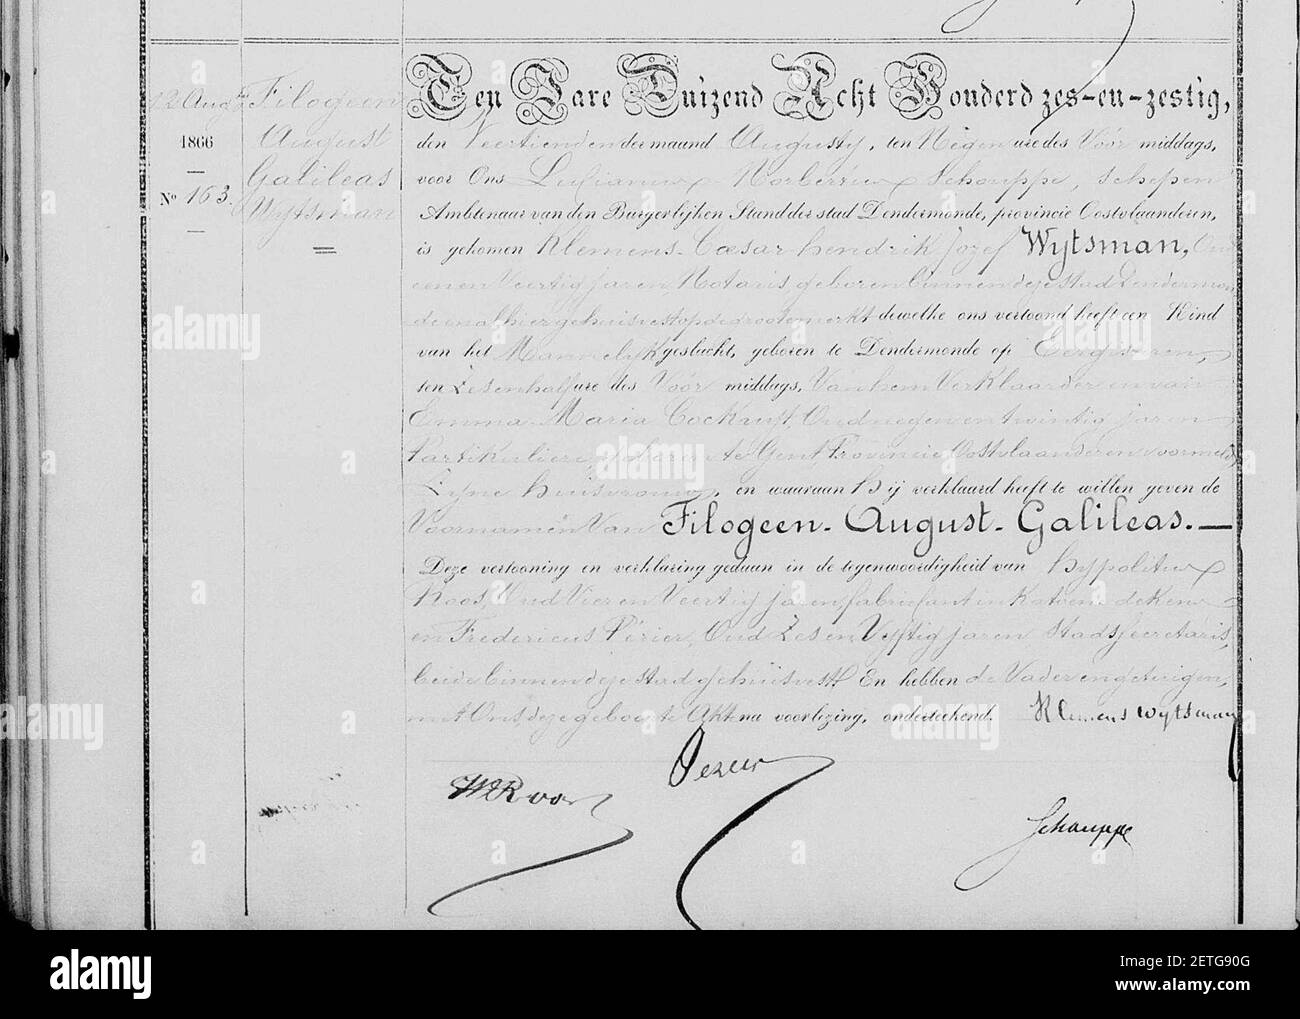 12 Aug
1866
Nº 163.
Filogeen
August
Galileas
Wytsman
Ten Jare Duizend Acht Honderd zes-en-zestig,
den Veertienden der maand Augusty, ten Negen ure des Vóór middags,
voor Ons Lusianus Norbertus Schouppe, Schepen
Ambtenaar van den Burgerlijken Stand der stad Dendermonde, provincie Oostvlaanderen,
is gekomen Klemens-Cæsar-hendrik Jozef Wytsman, Oud
eenen Veertig jaren, Notaris geboren binnen deze stad Dendermon
de en alhier gehuisvest op de groote merkt dewelke ons vertoond heeft een Kind
van het Mannelyk geslacht, geboren te Dendermonde op Eergisteren,
ten Zesenhalf ure des Vóór middags, Van hem Verklaarder en van
Emma-Maria Cockuyt, Oud negen en twintig jaren
Partikuliere, geboren te Gent, Provincie Oostvlaanderen voormeld
Zyne huisvrouw, en waaraan Hij verklaard heeft te willen geven de
Voornamen Van Filogeen-August-Galileas.
Deze vertooning en verklaring gedaan in de tegenwoordigheid van Hyppolitus
Roos, Oud Vier en Veertig jaren fabriekant in Katoene dekens
en Fredericus Périer, Oud Zes en Vyftig jaren Stadssecretaris,
beide binnen deze stad gehuisvest. En hebben de Vader en getuigen,
met Ons deze geboorte Akt na voorlezing, onderteekend. Klemens Wytsman
Perier
Roos
Schouppe
alamy
Image ID: 2ETG90G
www.alamy.com